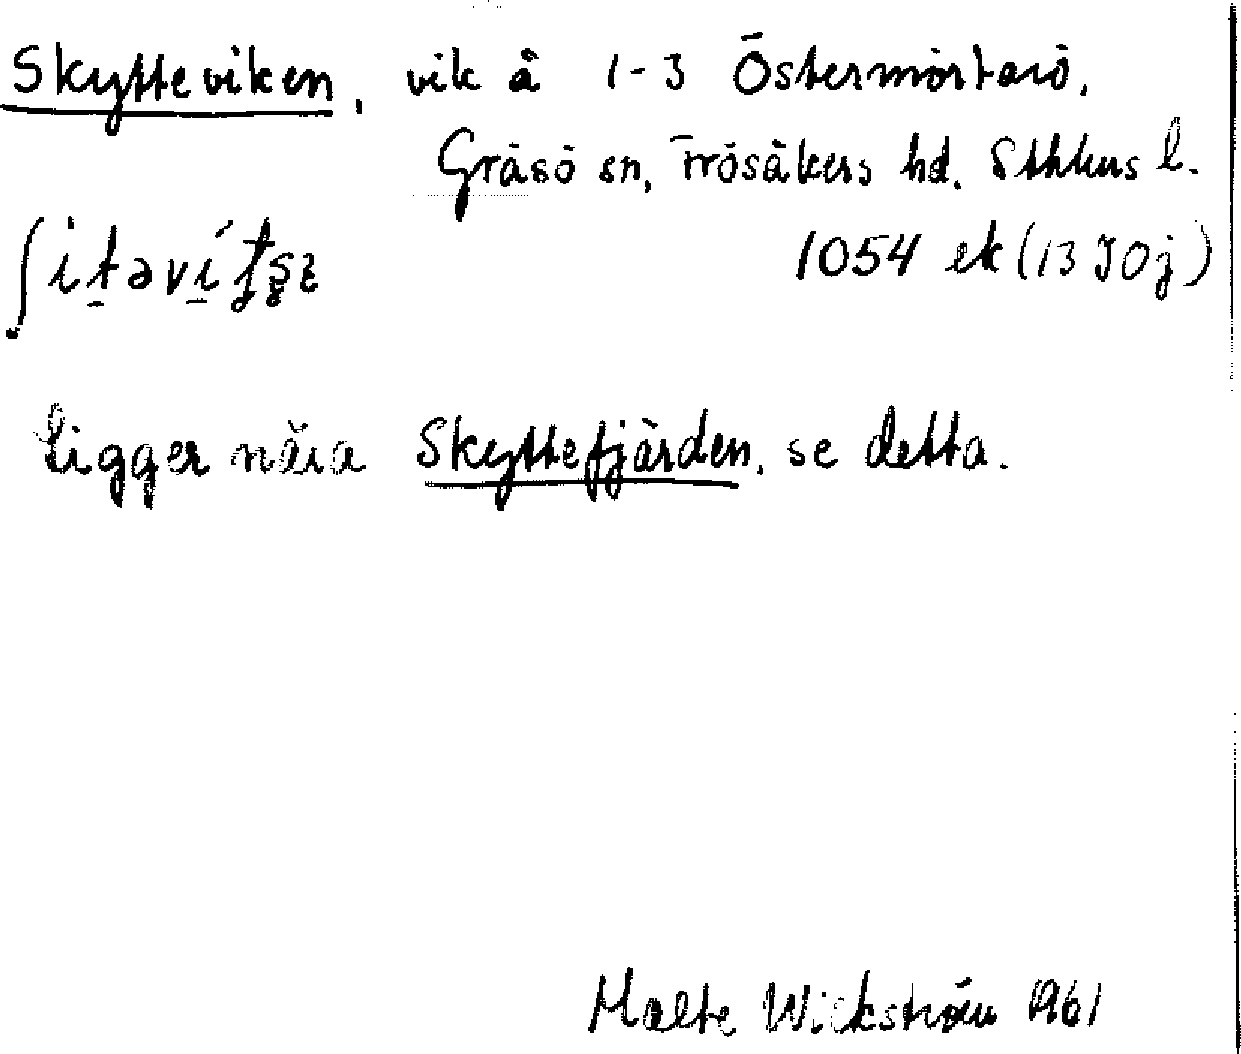 Skytteviken, vik å 1-3 Östermörtarö,
Gräsö sn, Frösåkers hd. Sthlms l.
1054 ek (13 I 0 j)
Ligger nära Skyttefjärden, se detta.
Malte Wickström 1961